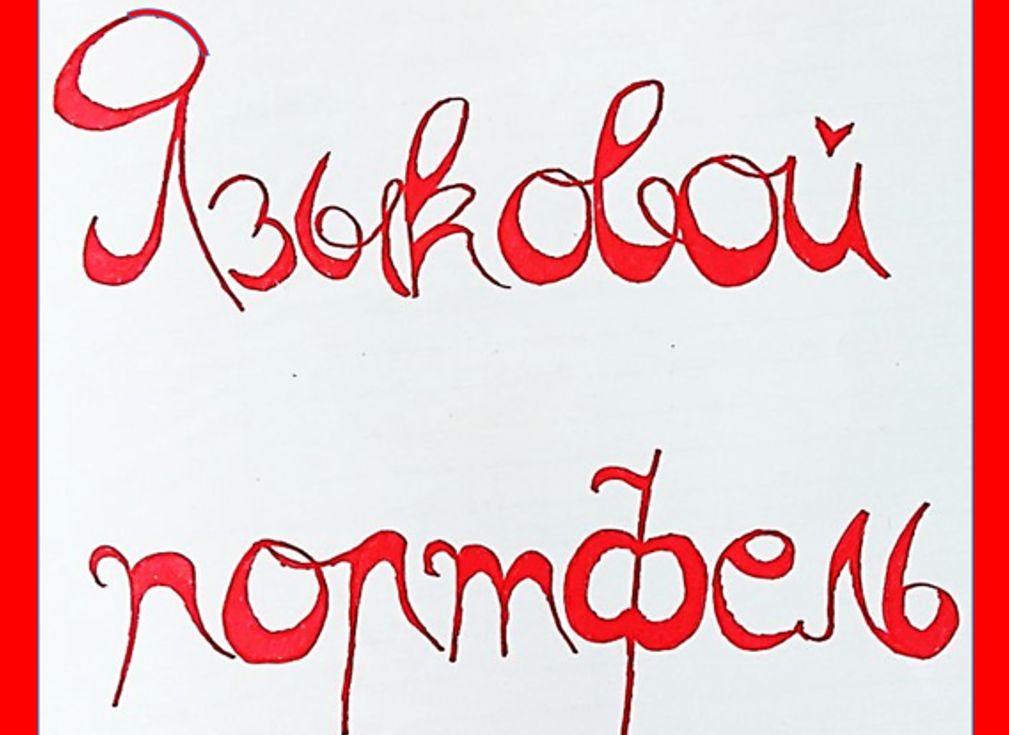 Языковой
портфель